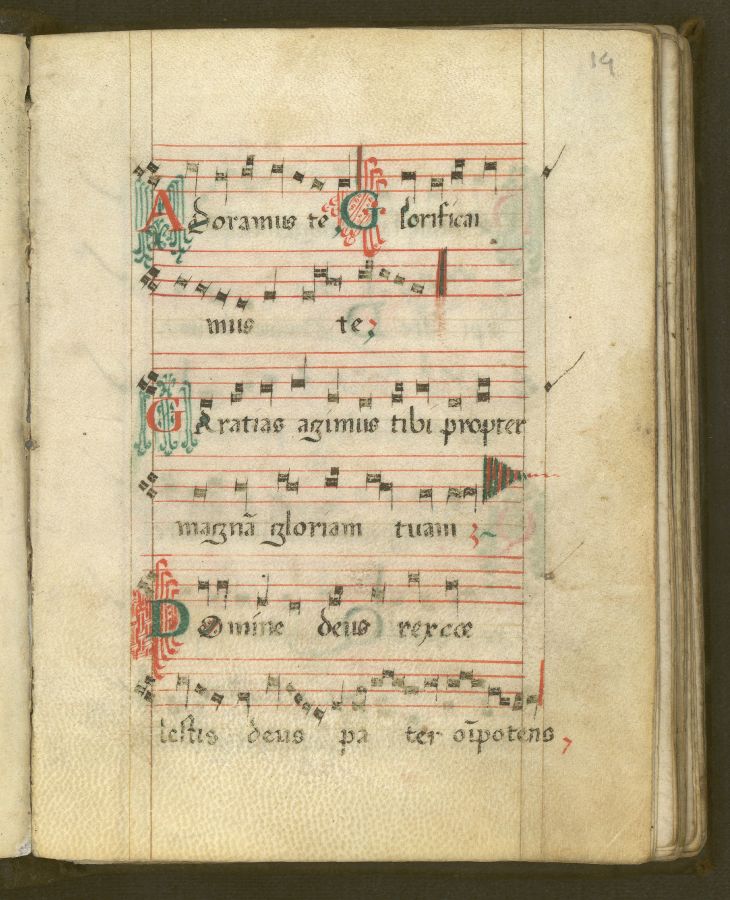 19
Adoramus te, Glorificamus
mus te;
Gratias agimus tibi propter
magnã gloriam tuam
Domine deus rex cœ
lestis deus pa ter oĩpotens,